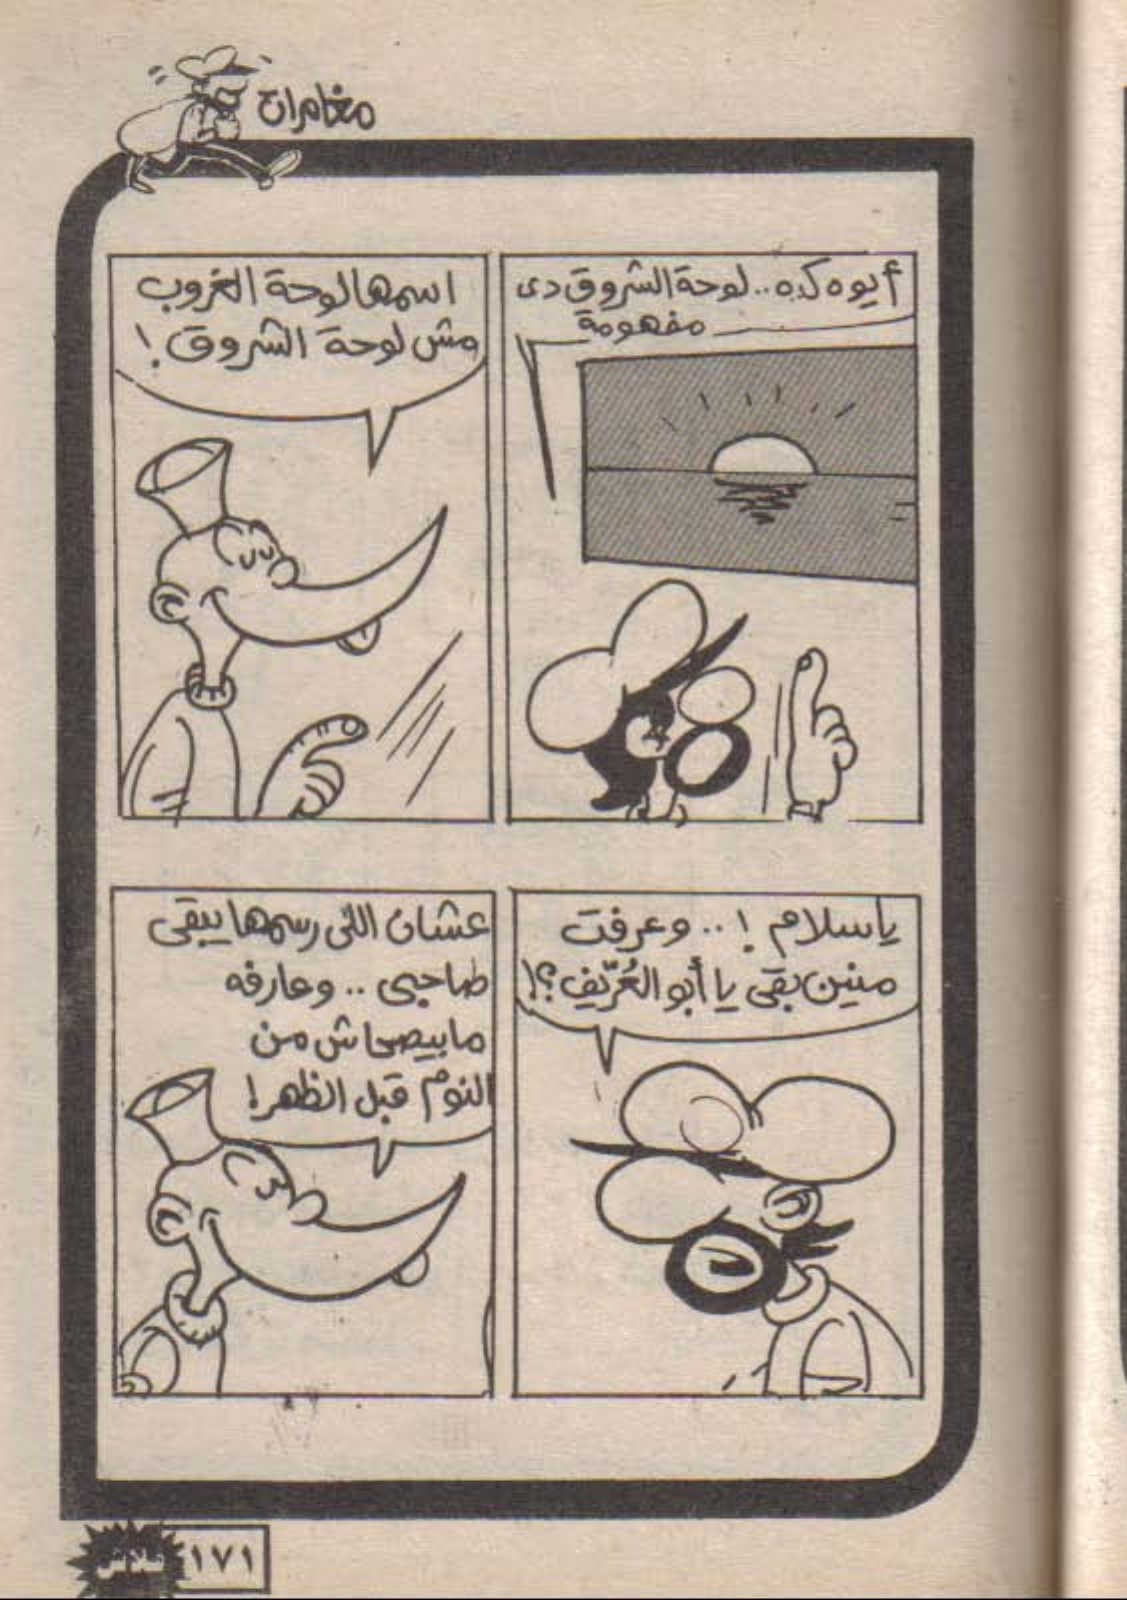 مغامرات
أيوه كده.. لوحة الشروق دى
مفهومة
اسمها لوحة الغروب
مش لوحة الشروق.!
ياسلام !.. وعرفت
منين بقى يا أبو العُرّيف؟!
عشان اللى رسمها يبقى
صاحبى .. وعارفه
مابيصحاش من
النوم قبل الظهر!
١٧١
فلاش